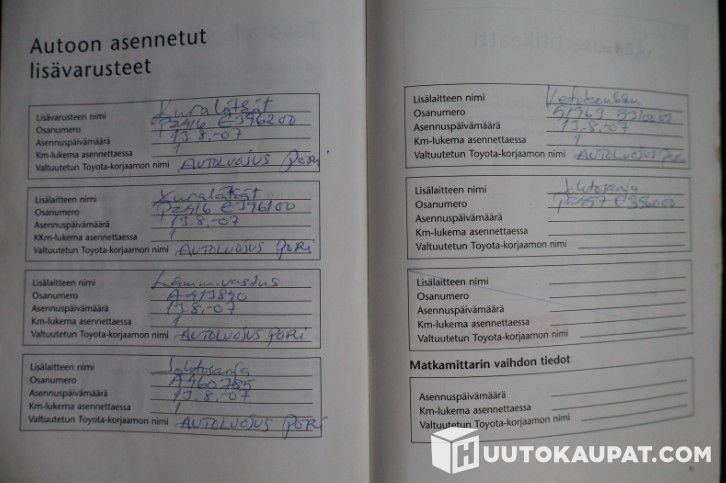 Autoon asennetut
lisävarusteet
Lisävarusteen nimi Kuralätkät
Osanumero PZ416 E396200
Asennuspäivämäärä 13.8.-07
Km-lukema asennettaessa 1
Valtuutetun Toyota-korjaamon nimi AUTOLUOJUS PORI
Lisälaitteen nimi Kuralätkät
Osanumero PZ416 E396100
Asennuspäivämäärä 13.8.-07
KKm-lukema asennettaessa 1
Valtuutetun Toyota-korjaamon nimi AUTOLUOJUS PORI
Lisälaitteen nimi Lämm.vastus
Osanumero A413840
Asennuspäivämäärä 13.8.-07
Km-lukema asennettaessa 1
Valtuutetun Toyota-korjaamon nimi AUTOLUOJUS PORI
Lisälaitteen nimi Johtosarja
Osanumero A460785
Asennuspäivämäärä 13.8.-07
Km-lukema asennettaessa 1
Valtuutetun Toyota-korjaamon nimi AUTOLUOJUS PORI
Lisälaitteen nimi
Osanumero
Asennuspäivämäärä 13.8.-07
Km-lukema asennettaessa 1
Valtuutetun Toyota-korjaamon nimi AUTOLUOJUS PORI
Lisälaitteen nimi Johtosarja
Osanumero PZ457 E356000
Asennuspäivämäärä
Km-lukema asennettaessa
Valtuutetun Toyota-korjaamon nimi
Lisälaitteen nimi
Osanumero
Asennuspäivämäärä
Km-lukema asennettaessa
Valtuutetun Toyota-korjaamon nimi
Matkamittarin vaihdon tiedot
Asennuspäivämäärä
Km-lukema asennettaessa
Valtuutetun Toyota-korjaamon nimi
HUUTOKAUPAT.COM